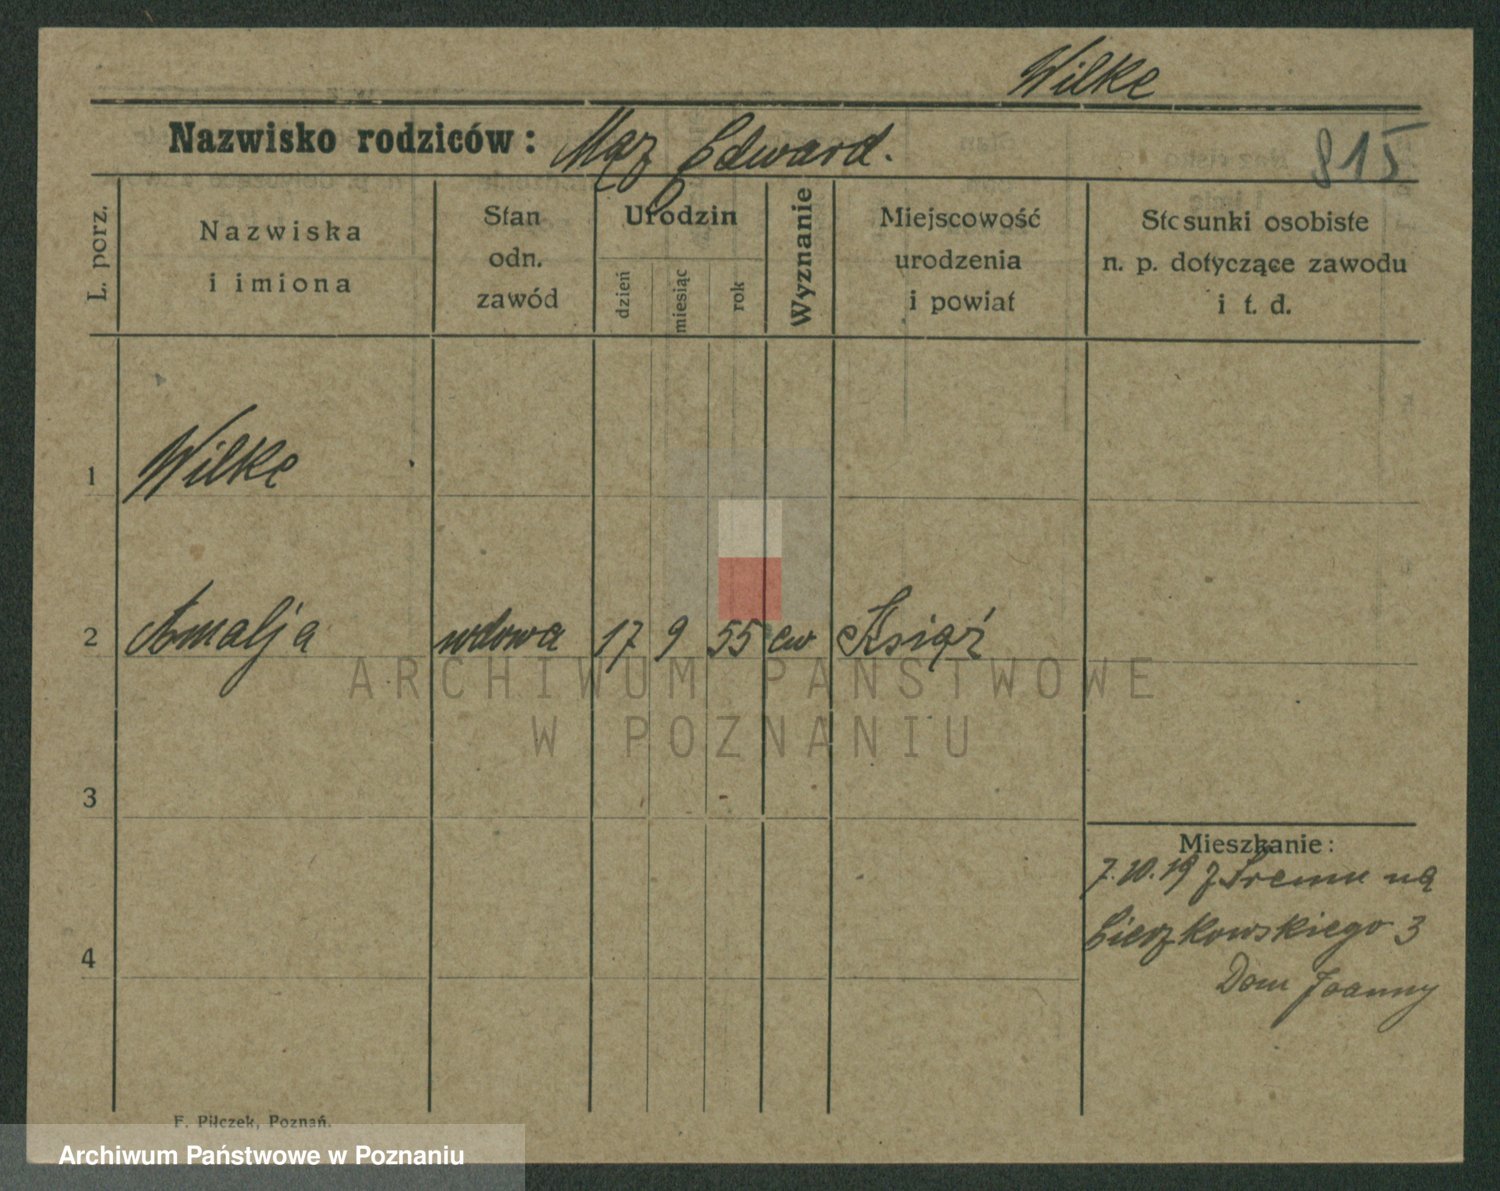 Wilke
Nazwisko rodziców: Mąż Edward.
815
L. porz.
Nazwiska
i imiona
Stan
odn.
zawód
Urodzin
dzień
miesiąc
rok
Wyznanie
Miejscowość
urodzenia
i powiat
Stosunki osobiste
n. p. dotyczące zawodu
i t. d.
1 Wilke
2 Amalja wdowa 17 9 55 ew Książ
ARCHIWUM PAŃSTWOWE
W POZNANIU
3
Mieszkanie:
7.10.19 z Śremu na
Cieszkowskiego 3
Dom Joanny
4
F. Pilczek, Poznań.
Archiwum Państwowe w Poznaniu